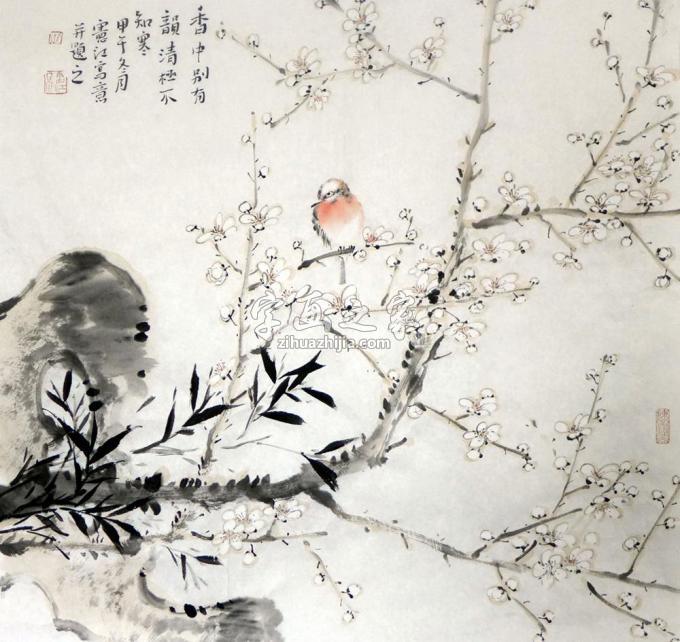 香中别有
韻清極不
知寒
甲午冬月
憲江寫意
并題之
字画之家
zihuazhijia.com